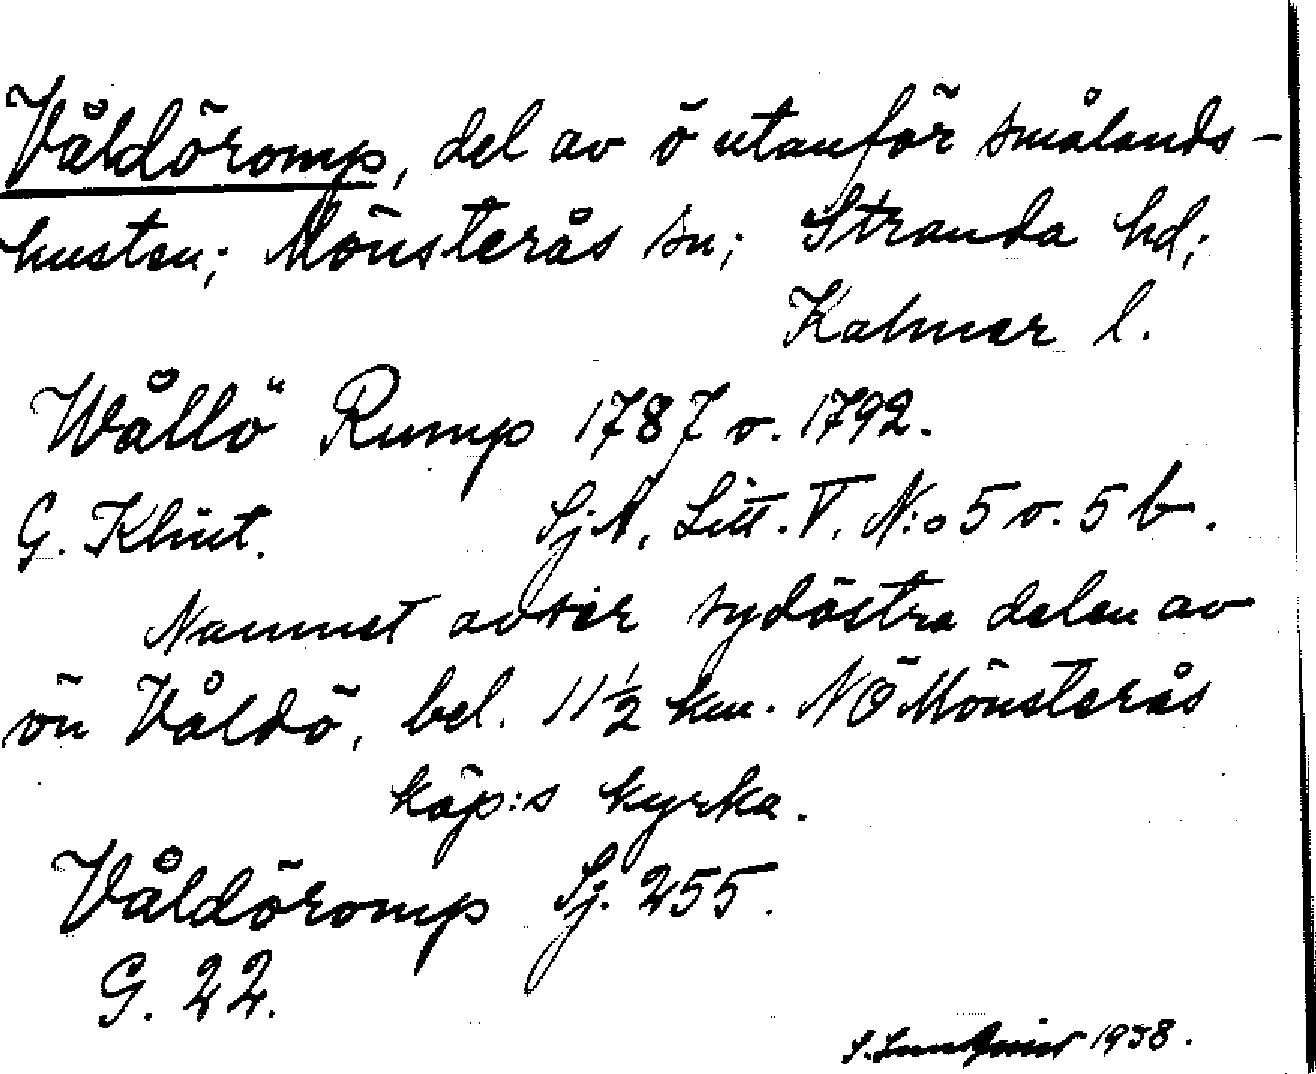 Våldöromp, del av ö utanför smålands-
kusten; Mönsterås sn; Stranda hd;
Kalmar l.
Wållö Rump 1787 o. 1792.
G. Klint. SjA, Litt. V. N:o 5 o. 5 b.
Namnet avser sydöstra delen av
ön Våldö, bel. 11½ km. NÖ Mönsterås
köp:s kyrka.
Våldöromp Sj. 255.
G. 22.
1938.